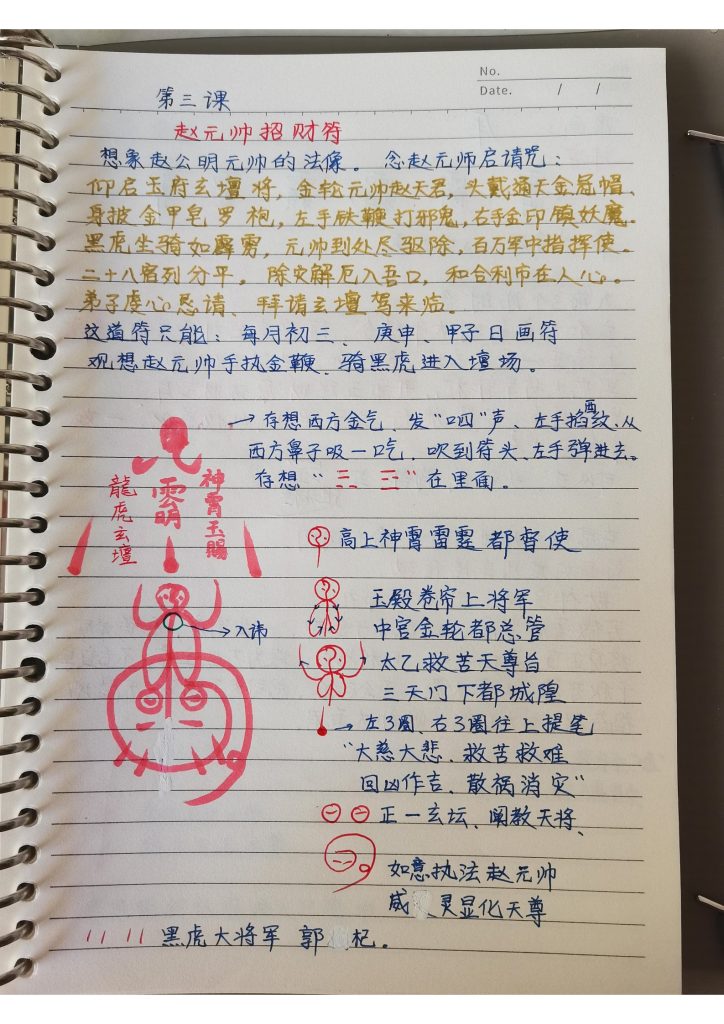 No.
Date. / /
第三课
赵元帅招财符
想象赵公明元帅的法像。 念赵元帅启请咒：
仰启玉府玄壇将，金轮元帅赵天君，头戴通天金冠帽、
身披金甲皂罗袍，左手铁鞭打邪鬼，右手金印镇妖魔、
黑虎坐骑如霹雳，元帅到处尽驱除，百万军中指挥使、
二十八宿列分平。 除灾解厄入吾口，和合利市在人心。
弟子虔心恳请、拜请玄壇驾来临。
这道符只能：每月初三、庚申、甲子日画符
观想赵元帅手执金鞭、骑黑虎进入壇场。
存想西方金气、发"呬"声、左手掐酉纹、从
西方鼻子吸一口气，吹到符头、左手弹进去。
存想" "在里面。
神霄玉賜
龍虎玄壇
高上神霄雷霆都督使
玉殿卷帘上将军
入讳
中官金轮都总管
太乙救苦天尊旨
三天门下都城隍
左3圈、右3圈往上提笔
"大慈大悲、救苦救难
回凶作吉、散祸消灾"
正一玄坛、阐教天将、
如意执法赵元帅
威 灵显化天尊
黑虎大将军 郭 杞。